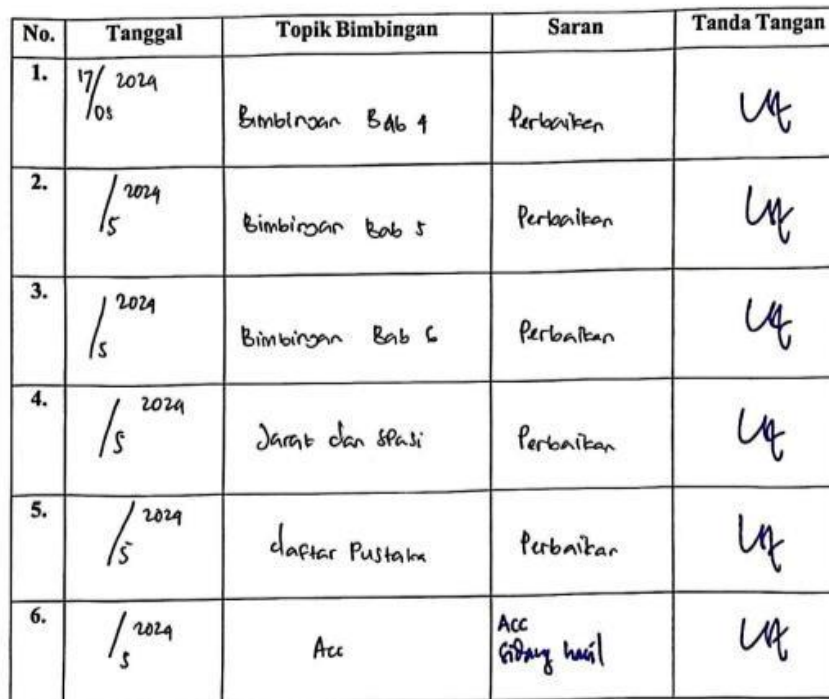 No. Tanggal Topik Bimbingan Saran Tanda Tangan
1. 17/05 2024 Bimbingan Bab 4 Perbaikan
2. /5 2024 Bimbingan Bab 5 Perbaikan
3. /5 2024 Bimbingan Bab 6 Perbaikan
4. /5 2024 Jarak dan spasi Perbaikan
5. /5 2024 daftar Pustaka Perbaikan
6. /5 2024 Acc Acc
sidang hasil